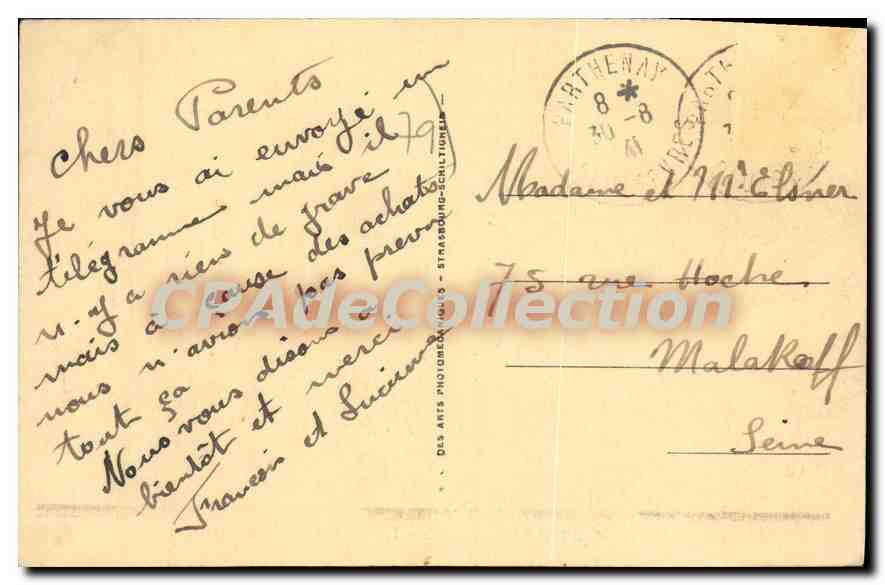 Chers Parents
Je vous ai envoyé un
télégramme mais il
n'y a rien de grave
mais à cause des achats
nous n'avions pas prevu
tout ça
Nous vous disons à
bientôt et merci
François et Lucienne
79
DES ARTS PHOTOMECANIQUES - STRASBOURG-SCHILTIGHEIM -
PARTHENAY
8 *
30 -8
41
Madame et Mr Elsner
75 rue Hoche
Malakoff
Seine
CPAdeCollection